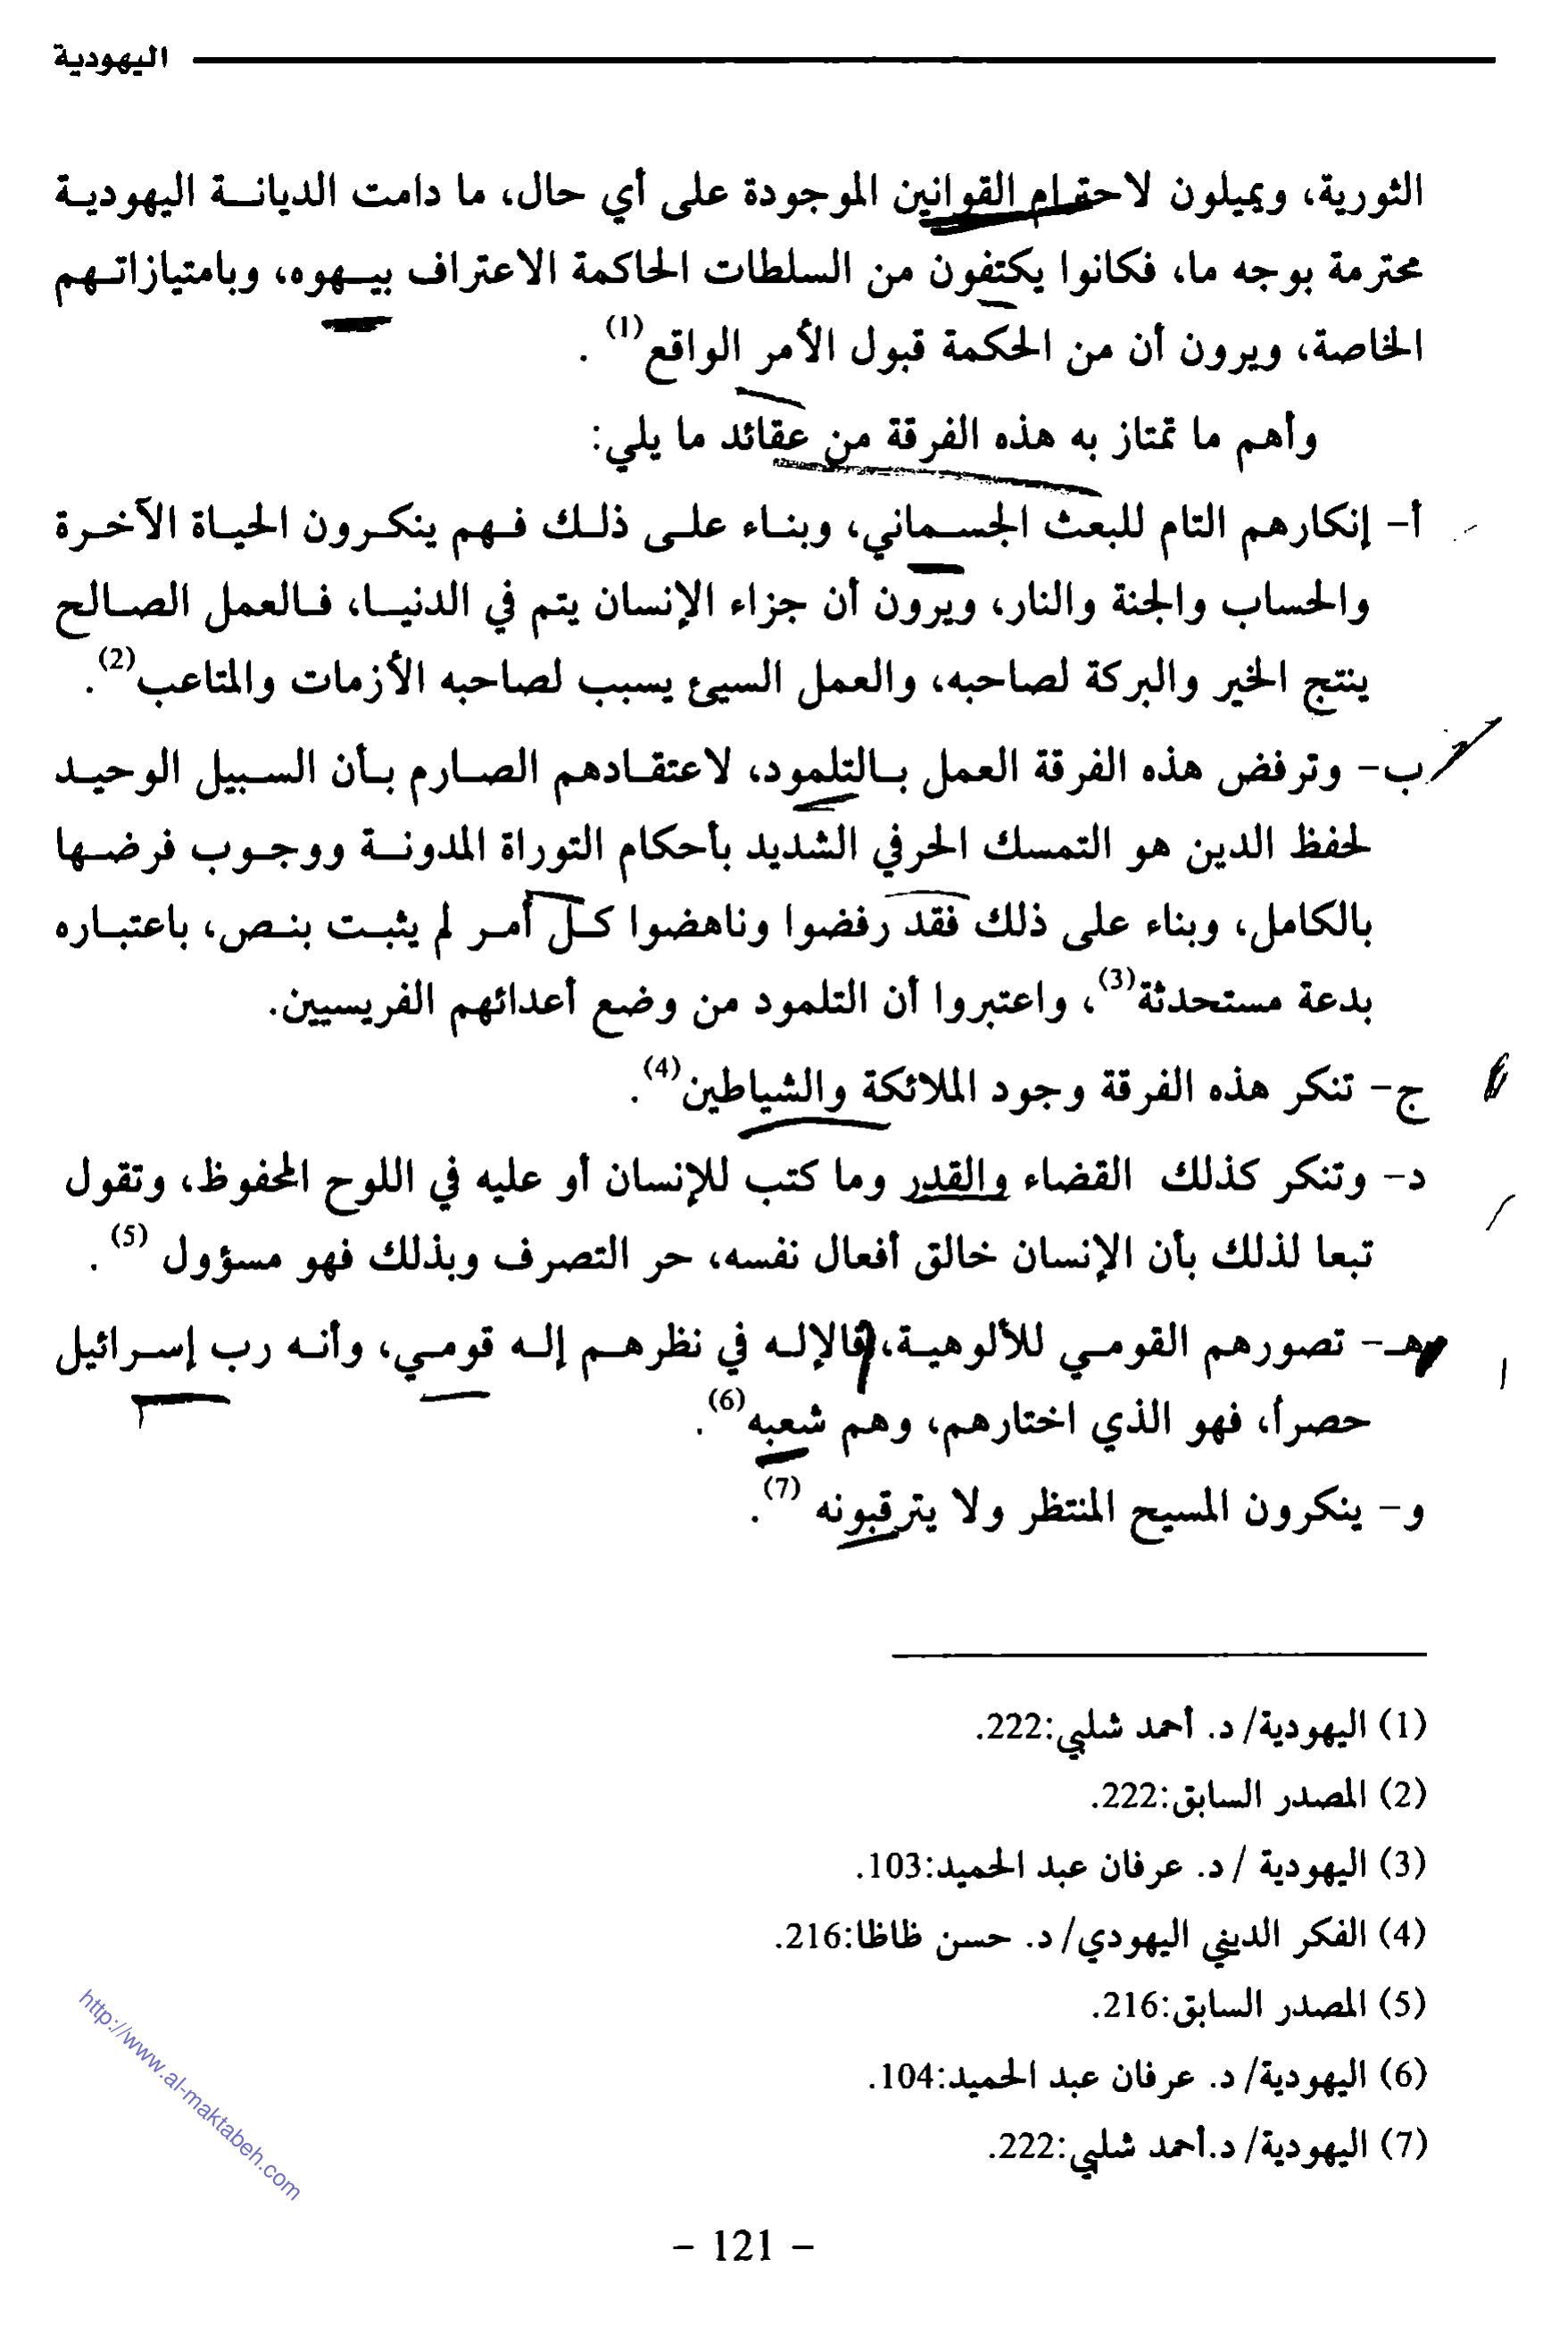 اليهودية
الثورية، ويميلون لاحترام القوانين الموجودة على أي حال، ما دامت الديانة اليهودية
محترمة بوجه ما، فكانوا يكتفون من السلطات الحاكمة الاعتراف بيهوه، وبامتيازاتهم
الخاصة، ويرون أن من الحكمة قبول الأمر الواقع(1) .
وأهم ما تمتاز به هذه الفرقة من عقائد ما يلي:
أ- إنكارهم التام للبعث الجسماني، وبناء على ذلك فهم ينكرون الحياة الآخرة
والحساب والجنة والنار، ويرون أن جزاء الإنسان يتم في الدنيا، فالعمل الصالح
ينتج الخير والبركة لصاحبه، والعمل السيئ يسبب لصاحبه الأزمات والمتاعب(2).
ب- وترفض هذه الفرقة العمل بالتلمود، لاعتقادهم الصارم بأن السبيل الوحيد
لحفظ الدين هو التمسك الحرفي الشديد بأحكام التوراة المدونة ووجوب فرضها
بالكامل، وبناء على ذلك فقد رفضوا وناهضوا كل أمر لم يثبت بنص، باعتباره
بدعة مستحدثة(3)، واعتبروا أن التلمود من وضع أعدائهم الفريسيين.
ج- تنكر هذه الفرقة وجود الملائكة والشياطين(4).
د- وتنكر كذلك القضاء والقدر وما كتب للإنسان أو عليه في اللوح المحفوظ، وتقول
تبعا لذلك بأن الإنسان خالق أفعال نفسه، حر التصرف وبذلك فهو مسؤول (5) .
هـ- تصورهم القومي للألوهية، فالإله في نظرهم إله قومي، وأنه رب إسرائيل
حصراً، فهو الذي اختارهم، وهم شعبه(6).
و- ينكرون المسيح المنتظر ولا يترقبونه (7).
(1) اليهودية/ د. أحمد شلبي:222.
(2) المصدر السابق:222.
(3) اليهودية / د. عرفان عبد الحميد:103.
(4) الفكر الديني اليهودي/ د. حسن ظاظا:216.
(5) المصدر السابق:216.
(6) اليهودية/ د. عرفان عبد الحميد:104.
(7) اليهودية/ د.أحمد شلبي:222.
http://www.al-maktabeh.com
- 121 -